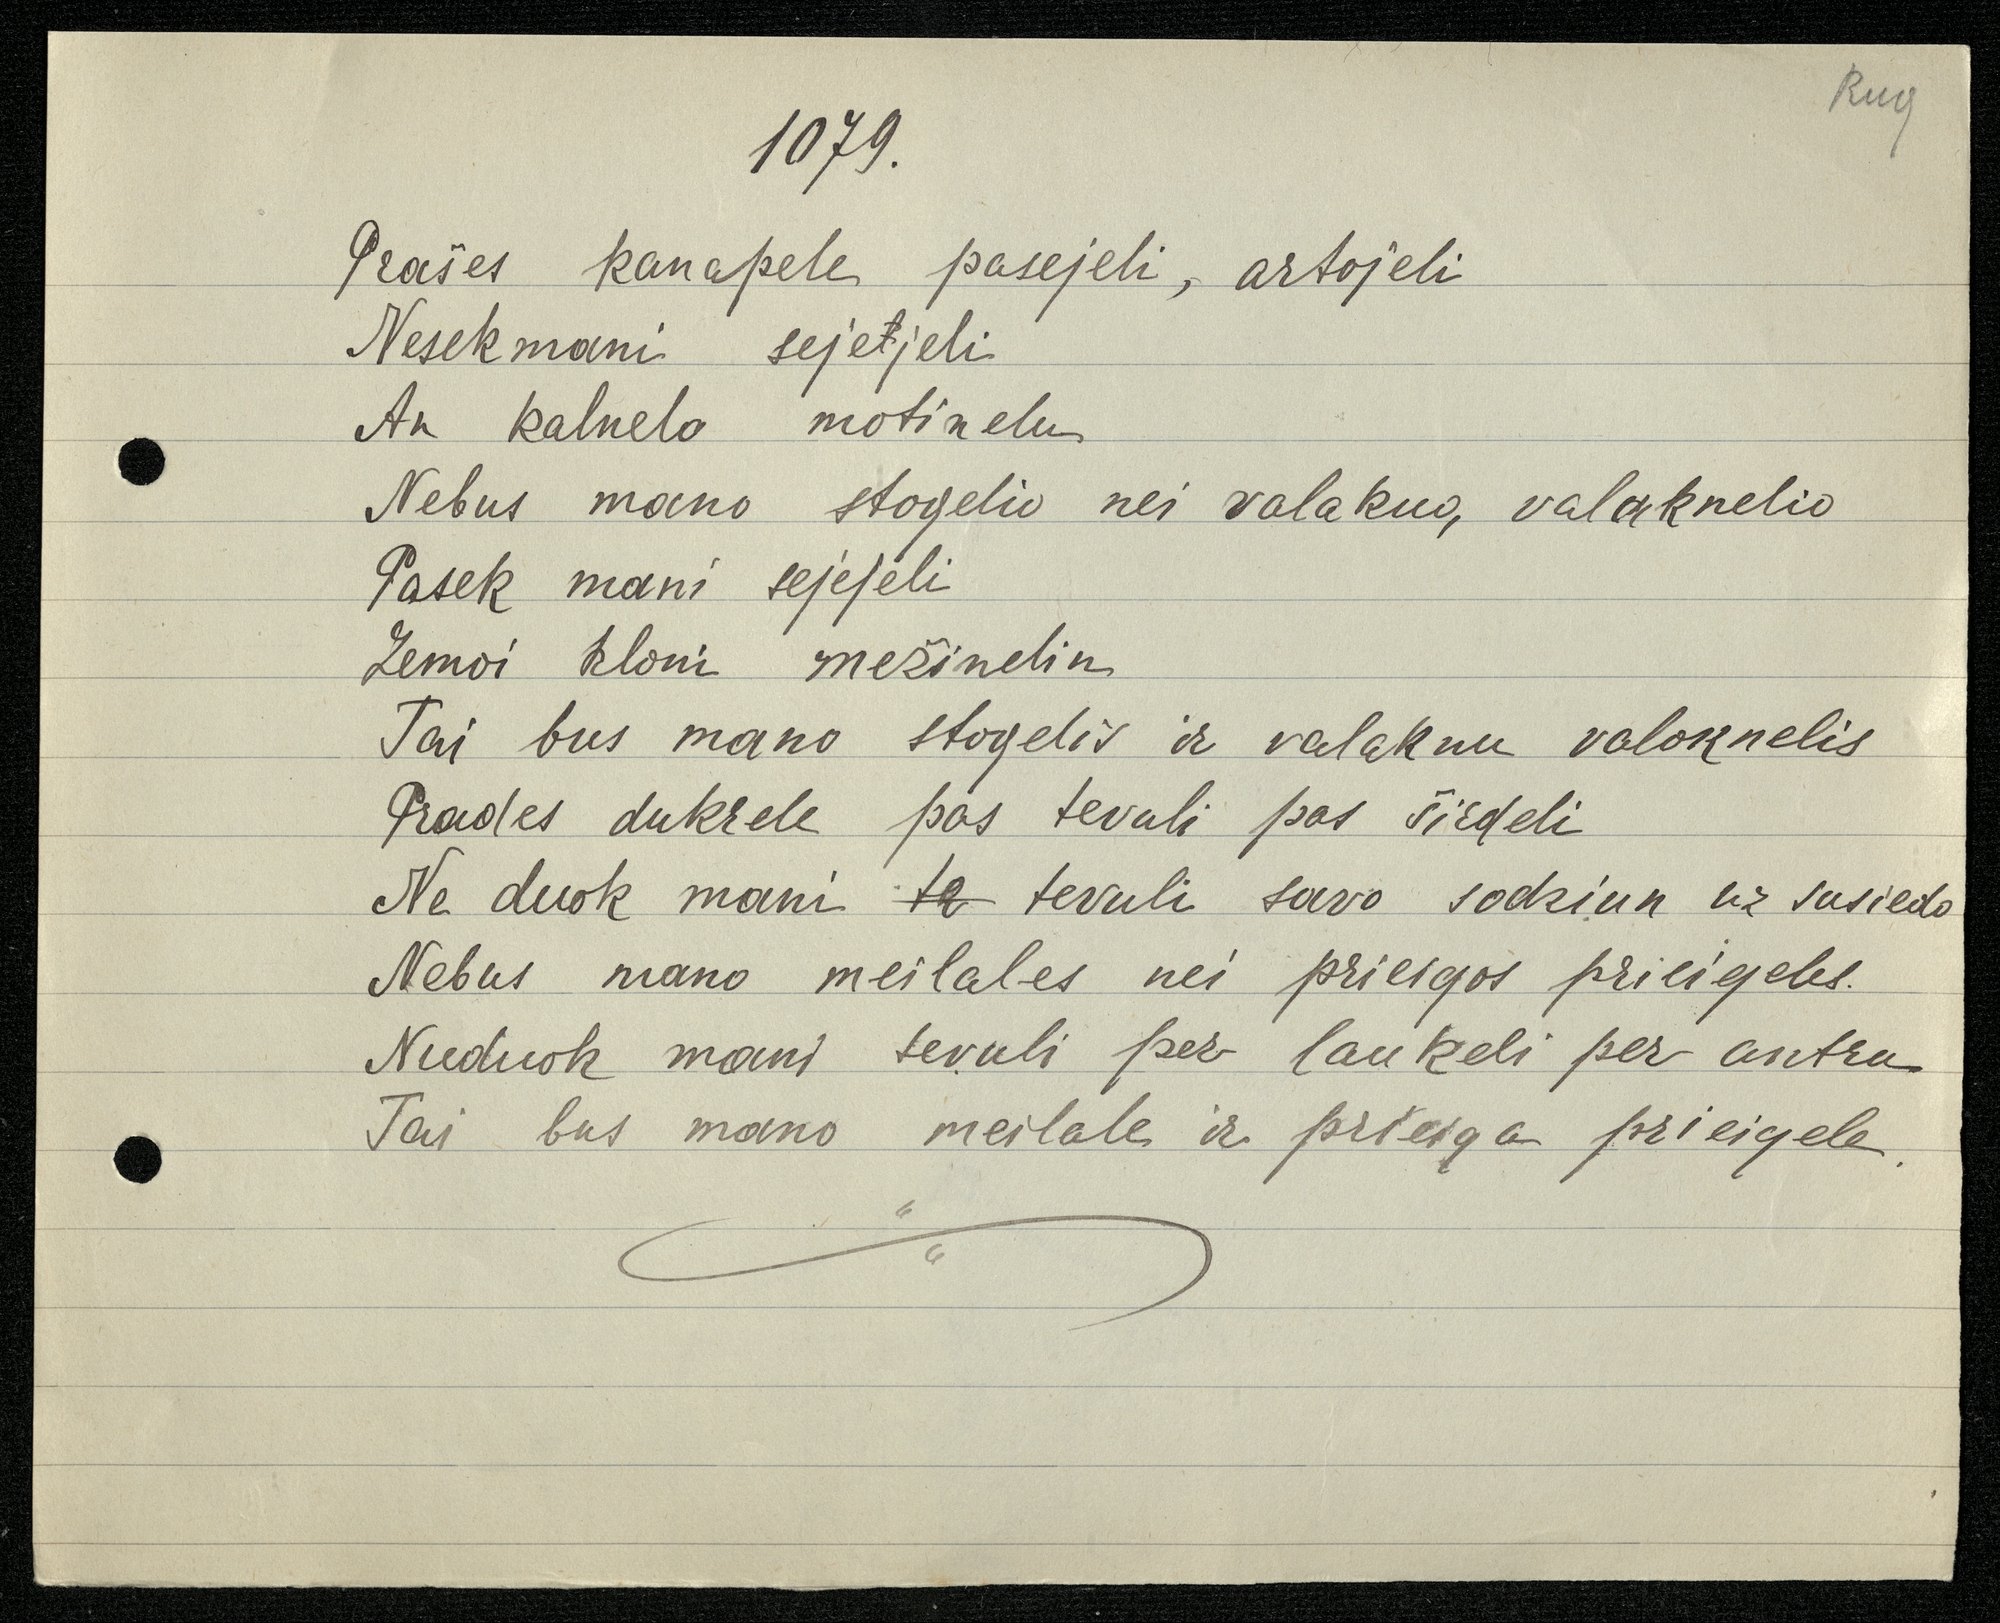 Rug
1079.
Prašes kanapele pasejeli, artojeli
Nesekmani sejetjeli
An kalnelo motinelu
Nebus mano stogelio nei valakno, valaknelio
Pasek mani sejejeli
Žemoi kloni mežinelin
Tai bus mano stogelis ir valaknu valoknelis
Prades dukrele pas tevuli pas širdeli
Ne duok mani te tevuli savo sodziun uz susiedo
Nebus mano meilales nei prieigos prieigeles.
Nuduok mani tevuli per laukeli per antru
Tai bus mano meilale ir prieiga prieigele.